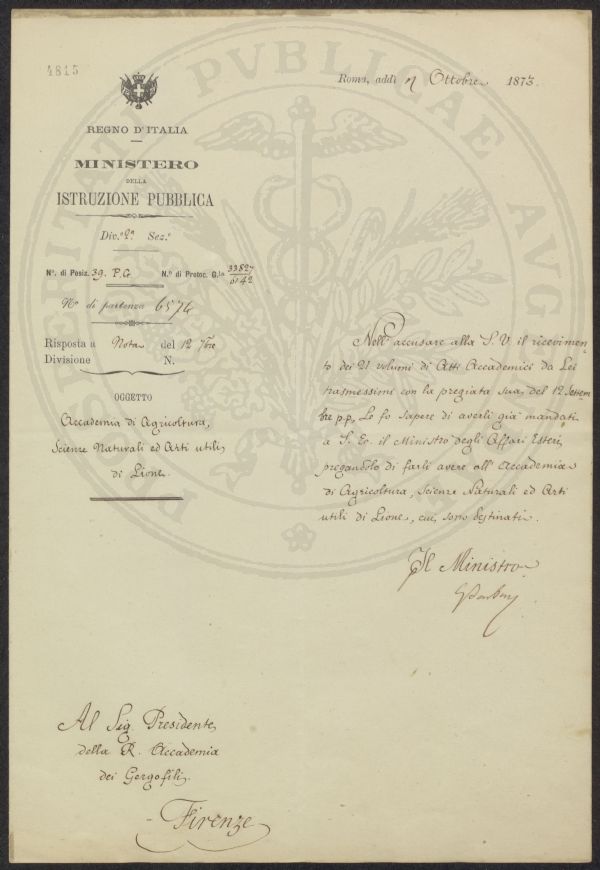 4815
Roma, addì Ottobre 1873.
REGNO D'ITALIA
MINISTERO
DELLA
ISTRUZIONE PUBBLICA
Div.e 2a Sez.e
N.o di Posiz. 39. P.G N.o di Protoc. G.le 33827
6142
No di partenza 6574
Risposta a Nota del 12 7bre
Divisione N.
OGGETTO
Accademia di Agricoltura,
Scienze Naturali ed Arti utili,
di Lione.
Nell'accusare alla S. V. il ricevimen-
to dei 21 volumi di Atti Accademici da Lei
trasmessimi con la pregiata sua, del 12 Settem
bre p.p., Le fo sapere di averli già mandati
a S. Ec. il Ministro degli Affari Esteri,
pregandolo di farli avere all'Accademia
di Agricoltura, Scienze Naturali ed Arti
utili di Lione, cui sono destinati.
Il Ministro
Al Sig. Presidente
della R. Accademia
dei Gergofili
- Firenze
PVBLICAE
AVG